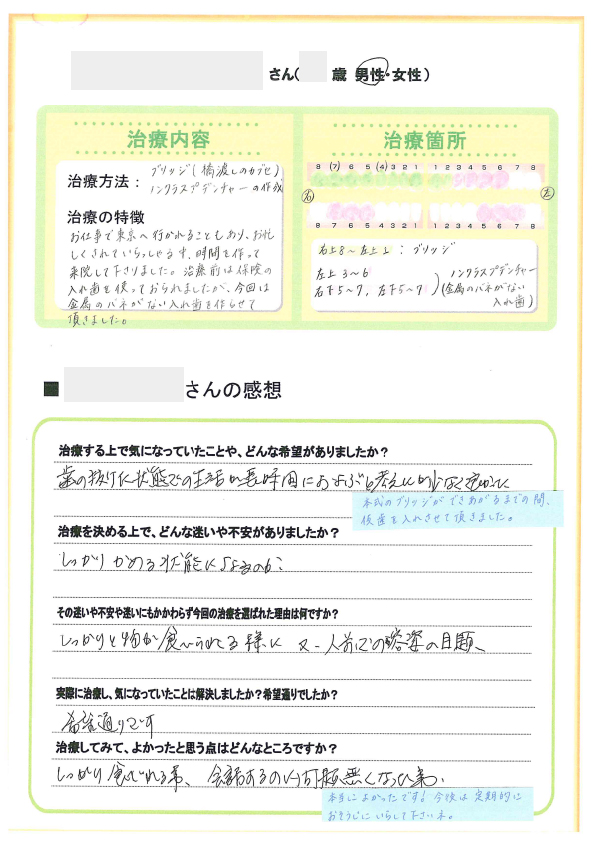 さん( 歳 男性・女性)
治療内容
治療方法：ブリッジ(橋渡しのカブセ)
ノンクラスプデンチャーの作成
治療の特徴
お仕事で東京へ行かれることもあり、お忙
しくされていらっしゃる中、時間を作って
来院して下さりました。治療前は保険の
入れ歯を使っておられましたが、今回は
金属のバネがない入れ歯を作らせて
頂きました。
治療箇所
8 (7) 6 5 (4) 3 2 1 1 2 3 4 5 6 7 8
右 左
8 7 6 5 4 3 2 1 1 2 3 4 5 6 7 8
右上8～左上1：ブリッジ
左上3～6
右下5～7, 左下5～7
ノンクラスプデンチャー
(金属のバネがない
入れ歯)
■ さんの感想
治療する上で気になっていたことや、どんな希望がありましたか？
歯の抜けた状態での生活が長時間におよぶと考え
本式のブリッジができあがるまでの間、
仮歯を入れさせて頂きました。
治療を決める上で、どんな迷いや不安がありましたか？
しっかりかめる状態になるのか
その迷いや不安や迷いにもかかわらず今回の治療を選ばれた理由は何ですか？
しっかりと物が食べられる様に 又、人前での容姿の
実際に治療し、気になっていたことは解決しましたか？希望通りでしたか？
希望通りです
治療してみて、よかったと思う点はどんなところですか？
しっかり食べれる事、会話するのに
本当によかったです！今後は定期的に
おそうじにいらして下さいネ。